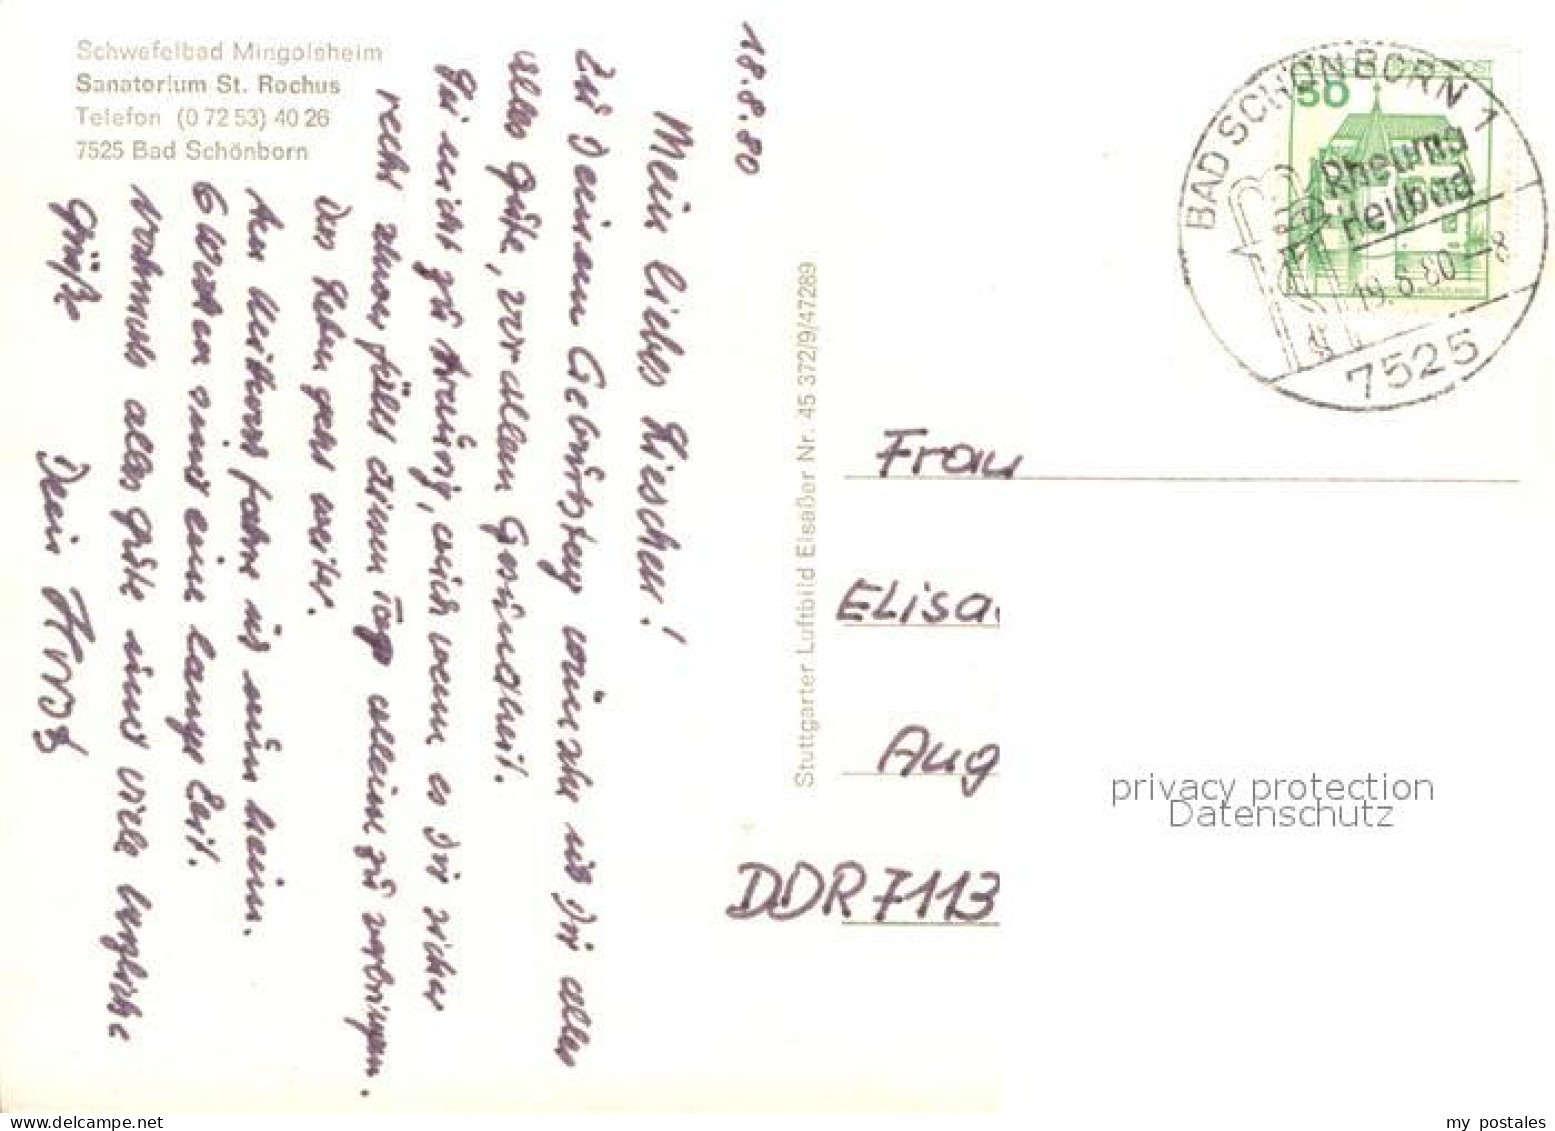 Schwefelbad Mingolsheim
Sanatorium St. Rochus
Telefon (0 72 53) 40 26
7525 Bad Schönborn
18.8.80
Mein liebes Lieschen!
Zu Deinem Geburtstag wünsche ich Dir alles
alles Gute, vor allem Gesundheit.
Sei nicht zu traurig, auch wenn es Dir sicher
recht schwer fällt diesen Tag alleine zu verbringen.
Das Leben geht weiter.
Am Mittwoch fahre ich nun heim.
6 Wochen sind eine lange Zeit.
Nochmals alles Gute und viele herzliche
Grüße
Dein
Stuttgarter Luftbild Elsaßer Nr. 45 372/9/47289
50
BAD SCHÖNBORN 1
Rheuma
Heilbad
19.8.80-8
7525
Frau
Elisa
Aug
DDR 7113
privacy protection
Datenschutz
www.delcampe.net
my_postales